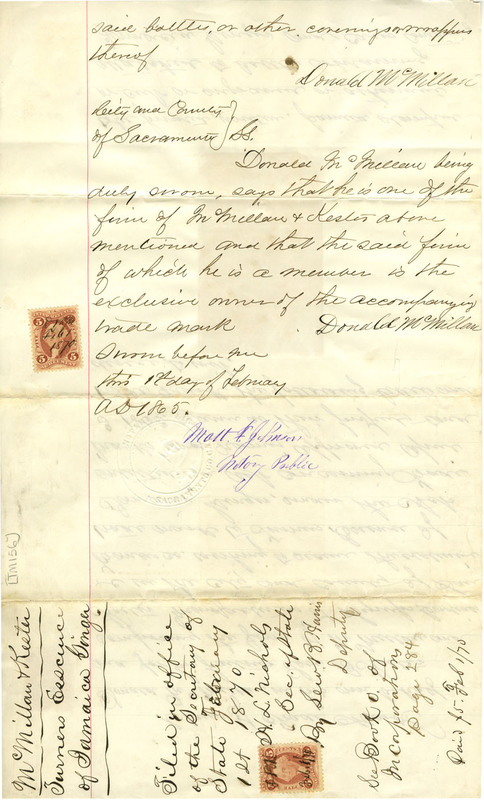 said bottles, or other coverings or wrappers
thereof
Donald McMillan
City and County
of Sacramento } SS.
Donald McMillan being
duly sworn, says that he is one of the
firm of McMillan & Kester above
mentioned and that the said firm
of which he is a member is the
exclusive owner of the accompanying
trade mark Donald McMillan
Sworn before me
this 1st day of February
AD 1865.
Matt F. Johnson
Notary Public
5 5
[TM156]
McMillan & Kester
Turners Esscince
of Jamaica Ginger
Filed in office
of the Secretary of
State February
1st 1870
H. L. Nichols
Sec. of State
By Lew B. Harris
Deputy
See Book 2 of
Incorporations
Page 284
Paid $5. Feb 1/70